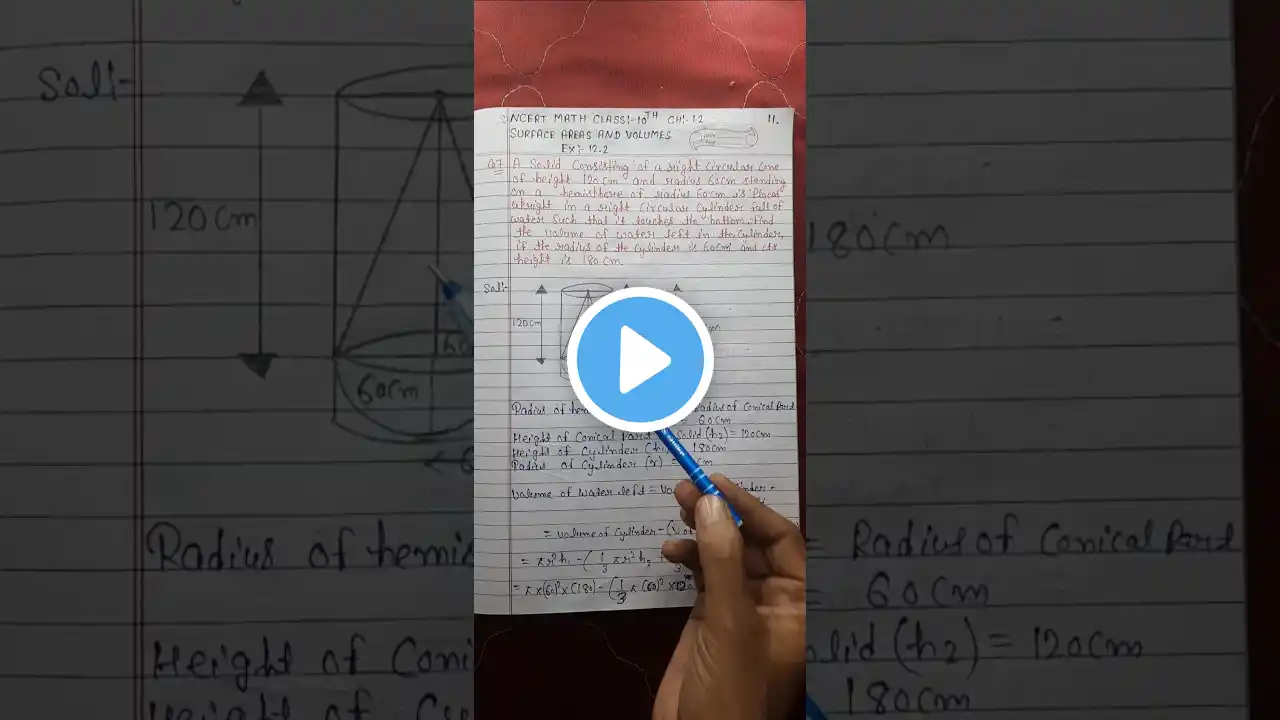 NCERT MATH CLASS:-10TH CH:-12 11.
SURFACE AREAS AND VOLUMES
EX:-12.2
Q7 A Solid Consisting of a right Circular Cone
of height 120cm and radius 60cm standing
on a hemisthere of radius 60cm is Placed
upright in a right Circular Cylinder full of
water Such that it touches the bottom. Find
the volume of water left in the Cylinder,
if the radius of the Cylinder is 60cm and its
height is 180 cm.
Sol:-
120cm
Radius of Radius of Conical Part
= 60cm
Height of Conical Part Solid (h2) = 120cm
Height of Cylinder 180cm
Radius of Cylinder (r) cm
Volume of water left =
= Volume of Cylinder - (
= πr²h1 - (1/3 πr²h2 +
= π×(60)²×(180) - (1/3 π(60)²×120
Sol:-
120cm
60cm
180cm
Radius of = Radius of Conical Part
= 60cm
Height of Solid (h2) = 120cm
Height of 180cm